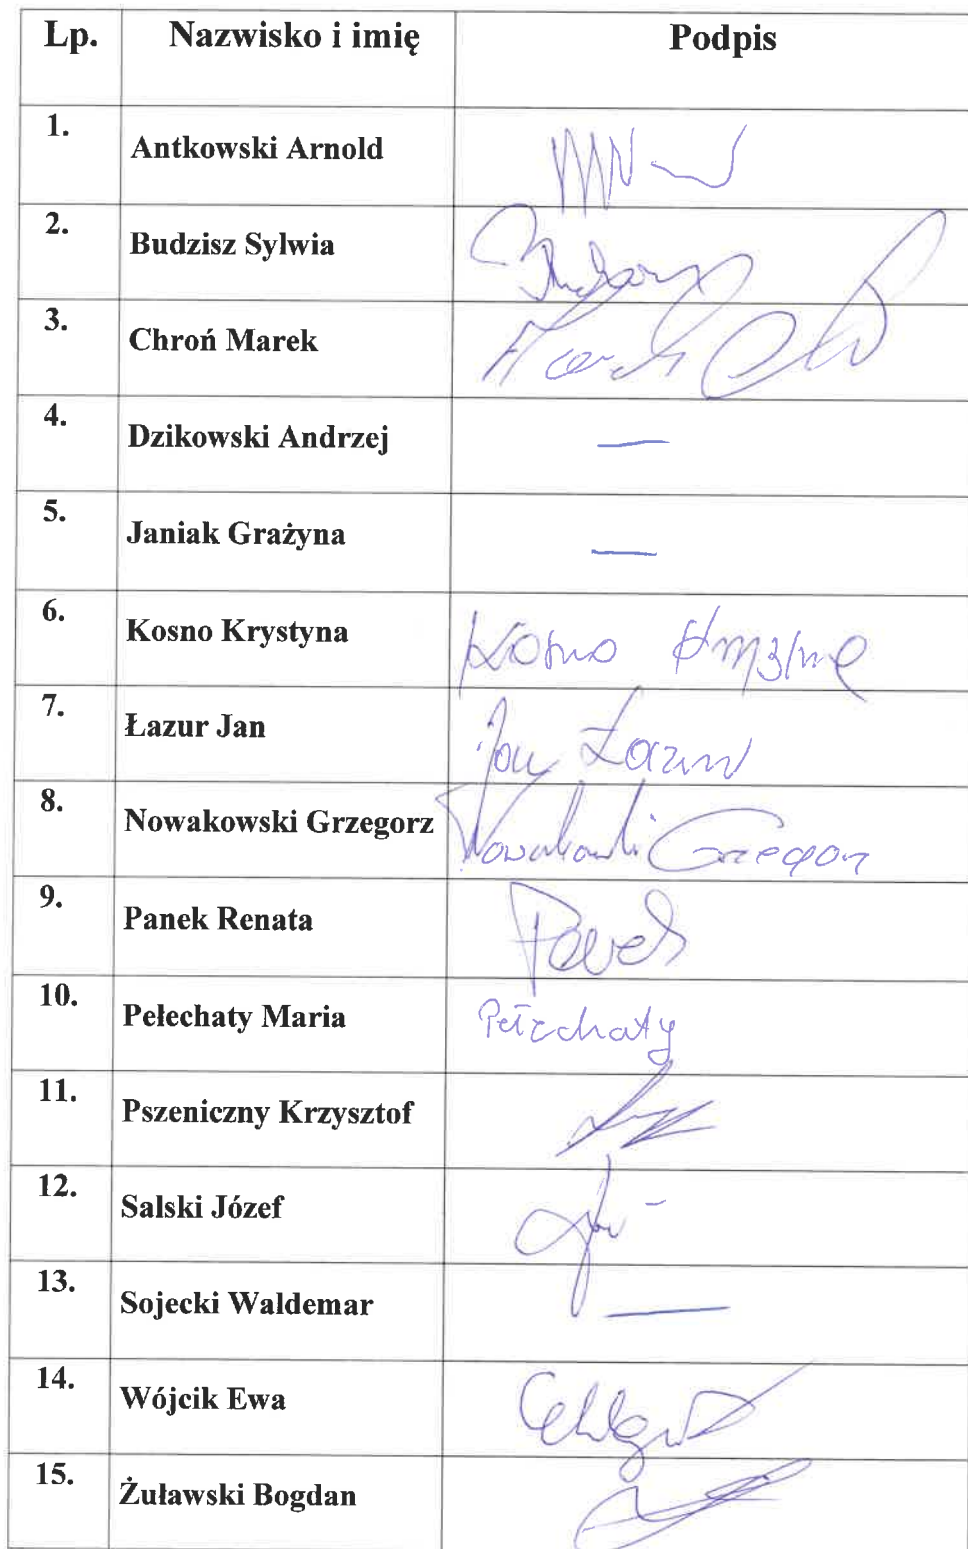 Lp. Nazwisko i imię Podpis
1. Antkowski Arnold
2. Budzisz Sylwia
3. Chroń Marek Marek
4. Dzikowski Andrzej —
5. Janiak Grażyna —
6. Kosno Krystyna Kosno
7. Łazur Jan Jan Łazur
8. Nowakowski Grzegorz Nowakowski Grzegorz
9. Panek Renata Panek
10. Pełechaty Maria Pełechaty
11. Pszeniczny Krzysztof
12. Salski Józef
13. Sojecki Waldemar —
14. Wójcik Ewa
15. Żuławski Bogdan